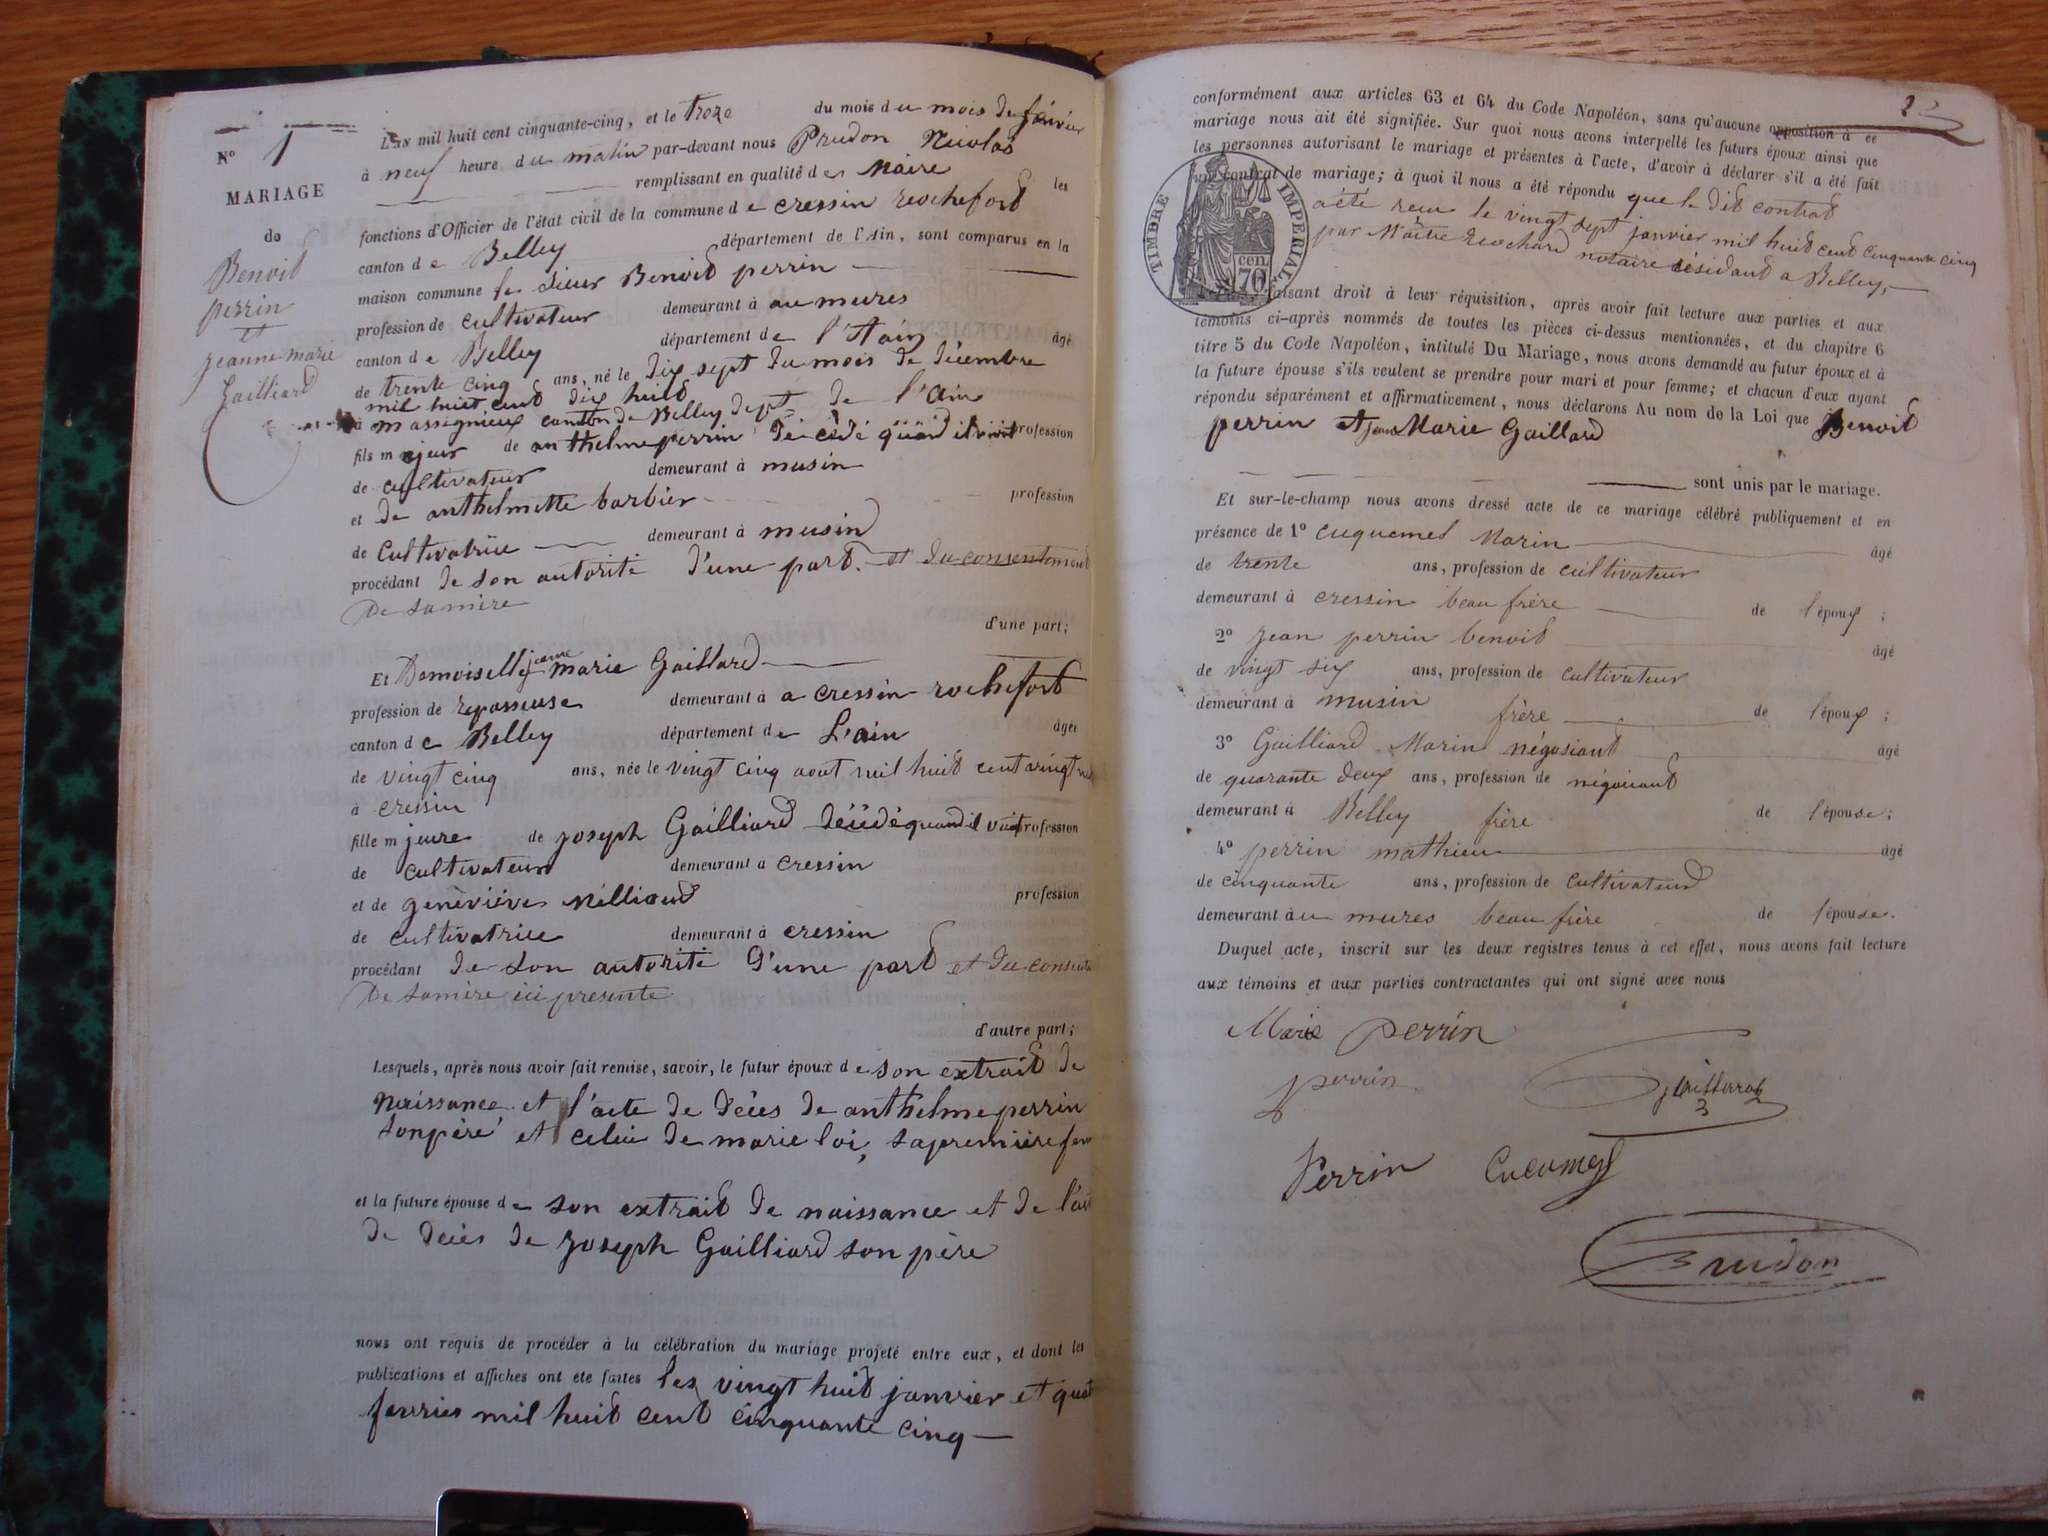 Nº 1
MARIAGE
de
Benoit
perrin
et
jeanne marie
Gailliard
L'an mil huit cent cinquante-cinq, et le treze du mois du mois de février
à neuf heure du matin par-devant nous Prudon Nicolas
remplissant en qualité de Maire les
fonctions d'Officier de l'état civil de la commune de cressin rochefort
canton de Belley département de l'Ain, sont comparus en la
maison commune le sieur Benoit perrin
profession de cultivateur demeurant à au mures
canton de Belley département de l'Ain âgé
de trente cinq ans, né le dix sept du mois de décembre
mil huit cent dix huit
à massignieux canton de Belley dept. de l'ain
fils majeur de anthelme perrin décédé quand il vivoit profession
de cultivateur demeurant à musin
et de anthelmette barbier profession
de Cultivatrice demeurant à musin
procédant de son autorité d'une part. et du consentement
De sa mère
d'une part;
Et Demoiselle jeanne marie Gaillard
profession de repasseuse demeurant à a cressin rochefort
canton de Belley département de L'ain âgée
de vingt cinq ans, née le vingt cinq aout mil huit cent vingt
à cressin
fille mjeure de joseph Gailliard décédé quand il vivoit profession
de cultivateur demeurant à cressin
et de geneviéve Milliand profession
de cultivatrice demeurant à cressin
procédant de son autorité d'une part et du consente
De sa mère ici presente
d'autre part;
Lesquels, après nous avoir fait remise, savoir, le futur époux de son extrait de
Naissance et l'acte de décès de anthelme perrin
son père et celui de marie loi, sa première fem
et la future épouse de son extrait de naissance et de l'acte
de décès de joseph Gailliard son père
nous ont requis de procéder à la célébration du mariage projeté entre eux, et dont les
publications et affiches ont été faites les vingt huit janvier et quat
fevrier mil huit cent cinquante cinq
2
conformément aux articles 63 et 64 du Code Napoléon, sans qu'aucune opposition à ce
mariage nous ait été signifiée. Sur quoi nous avons interpellé les futurs époux ainsi que
les personnes autorisant le mariage et présentes à l'acte, d'avoir à déclarer s'il a été fait
un contrat de mariage; à quoi il nous a été répondu que le dit contrat
a été recu le vingt sept janvier mil huit cent cinquante cinq
par Maitre rochard notaire résidant a Belley,
TIMBRE IMPERIAL
70 cen.
faisant droit à leur réquisition, après avoir fait lecture aux parties et aux
témoins ci-après nommés de toutes les pièces ci-dessus mentionnées, et du chapitre 6
titre 5 du Code Napoléon, intitulé Du Mariage, nous avons demandé au futur époux et à
la future épouse s'ils veulent se prendre pour mari et pour femme; et chacun d'eux ayant
répondu séparément et affirmativement, nous déclarons Au nom de la Loi que Benoit
perrin et jean Marie Gaillard
sont unis par le mariage.
Et sur-le-champ nous avons dressé acte de ce mariage célébré publiquement et en
présence de 1º cuquemel Marin âgé
de trente ans, profession de cultivateur
demeurant à cressin beau frère de l'époux;
2º jean perrin benoit âgé
de vingt six ans, profession de cultivateur
demeurant à musin frère de l'époux;
3º Gailliard Marin négosiant âgé
de quarante deux ans, profession de négociant
demeurant à Belley frère de l'épouse;
4º perrin mathieu âgé
de cinquante ans, profession de Cultivateur
demeurant àu mures beau frère de l'épouse.
Duquel acte, inscrit sur les deux registres tenus à cet effet, nous avons fait lecture
aux témoins et aux parties contractantes qui ont signé avec nous
Marie perrin
perrin
Perrin Cucumel
Prudon